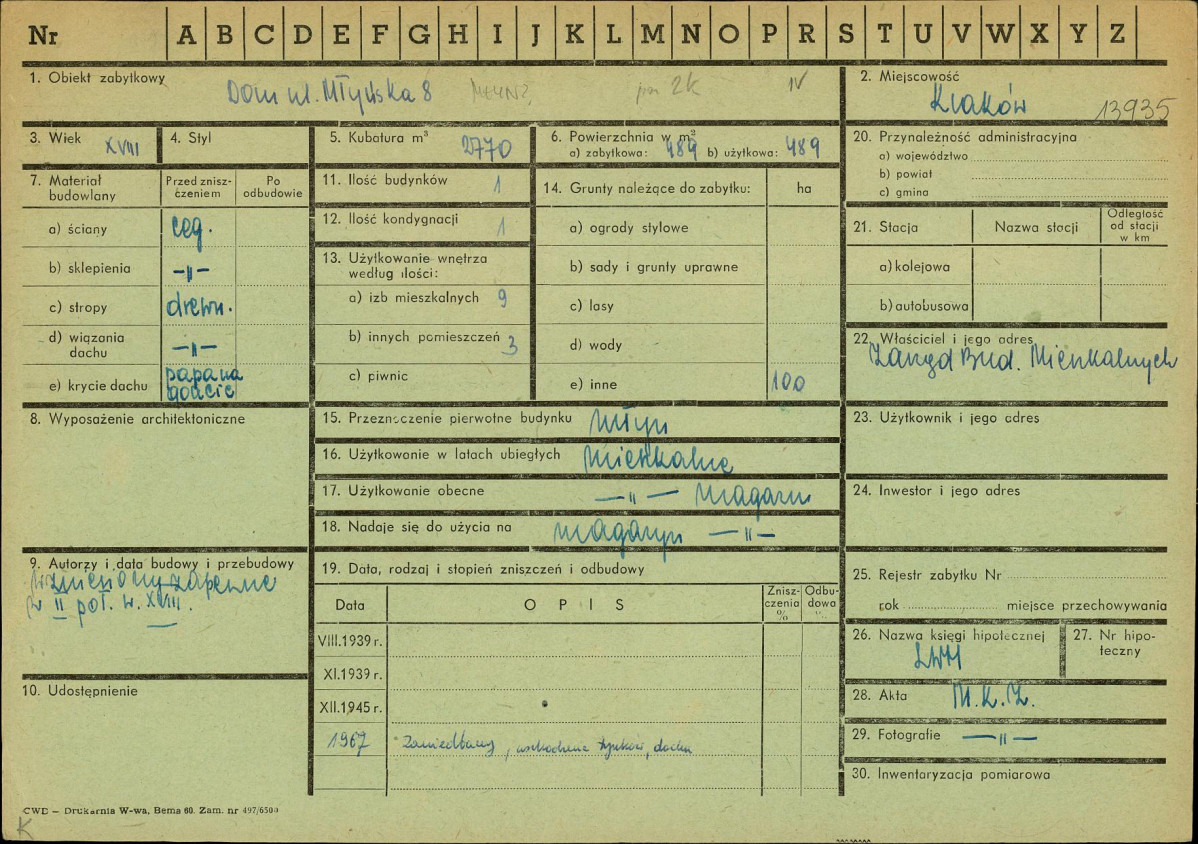 Nr A B C D E F G H I J K L M N O P R S T U V W X Y Z
1. Obiekt zabytkowy Dom ul. Młyńska 8 MŁYN? 2k IV
2. Miejscowość
Kraków 13935
3. Wiek XVIII
4. Styl
5. Kubatura m³ 2770
6. Powierzchnia w m²
a) zabytkowa: 489 b) użytkowa: 489
20. Przynależność administracyjna
a) województwo
b) powiat
c) gmina
7. Materiał budowlany
Przed znisz-
czeniem
Po
odbudowie
a) ściany ceg.
b) sklepienia —„—
c) stropy drewn.
d) wiązania
dachu —„—
e) krycie dachu papa na
goncie
11. Ilość budynków 1
12. Ilość kondygnacji 1
13. Użytkowanie wnętrza
według ilości:
a) izb mieszkalnych 9
b) innych pomieszczeń 3
c) piwnic
14. Grunty należące do zabytku: ha
a) ogrody stylowe
b) sady i grunty uprawne
c) lasy
d) wody
e) inne 100
21. Stacja Nazwa stacji
Odległość
od stacji
w km
a) kolejowa
b) autobusowa
22. Właściciel i jego adres
Zarząd Bud. Mieszkalnych
8. Wyposażenie architektoniczne
15. Przeznaczenie pierwotne budynku młyn
16. Użytkowanie w latach ubiegłych mieszkalne
17. Użytkowanie obecne —„— magazyn
18. Nadaje się do użycia na magazyn —„—
23. Użytkownik i jego adres
24. Inwestor i jego adres
9. Autorzy i data budowy i przebudowy
Wzniesiony zapewne
w II poł. w. XVIII.
10. Udostępnienie
19. Data, rodzaj i stopień zniszczeń i odbudowy
Data OPIS
Znisz-
czenia
%
Odbu-
dowa
%
VIII.1939 r.
XI.1939 r.
XII.1945 r.
1967 Zaniedbany, uszkodzenia tynków, dachu
25. Rejestr zabytku Nr
rok miejsce przechowywania
26. Nazwa księgi hipotecznej
LWH
27. Nr hipo-
teczny
28. Akta M.K.Z.
29. Fotografie —„—
30. Inwentaryzacja pomiarowa
CWD — Drukarnia W-wa, Bema 60. Zam. nr 497/6500
K